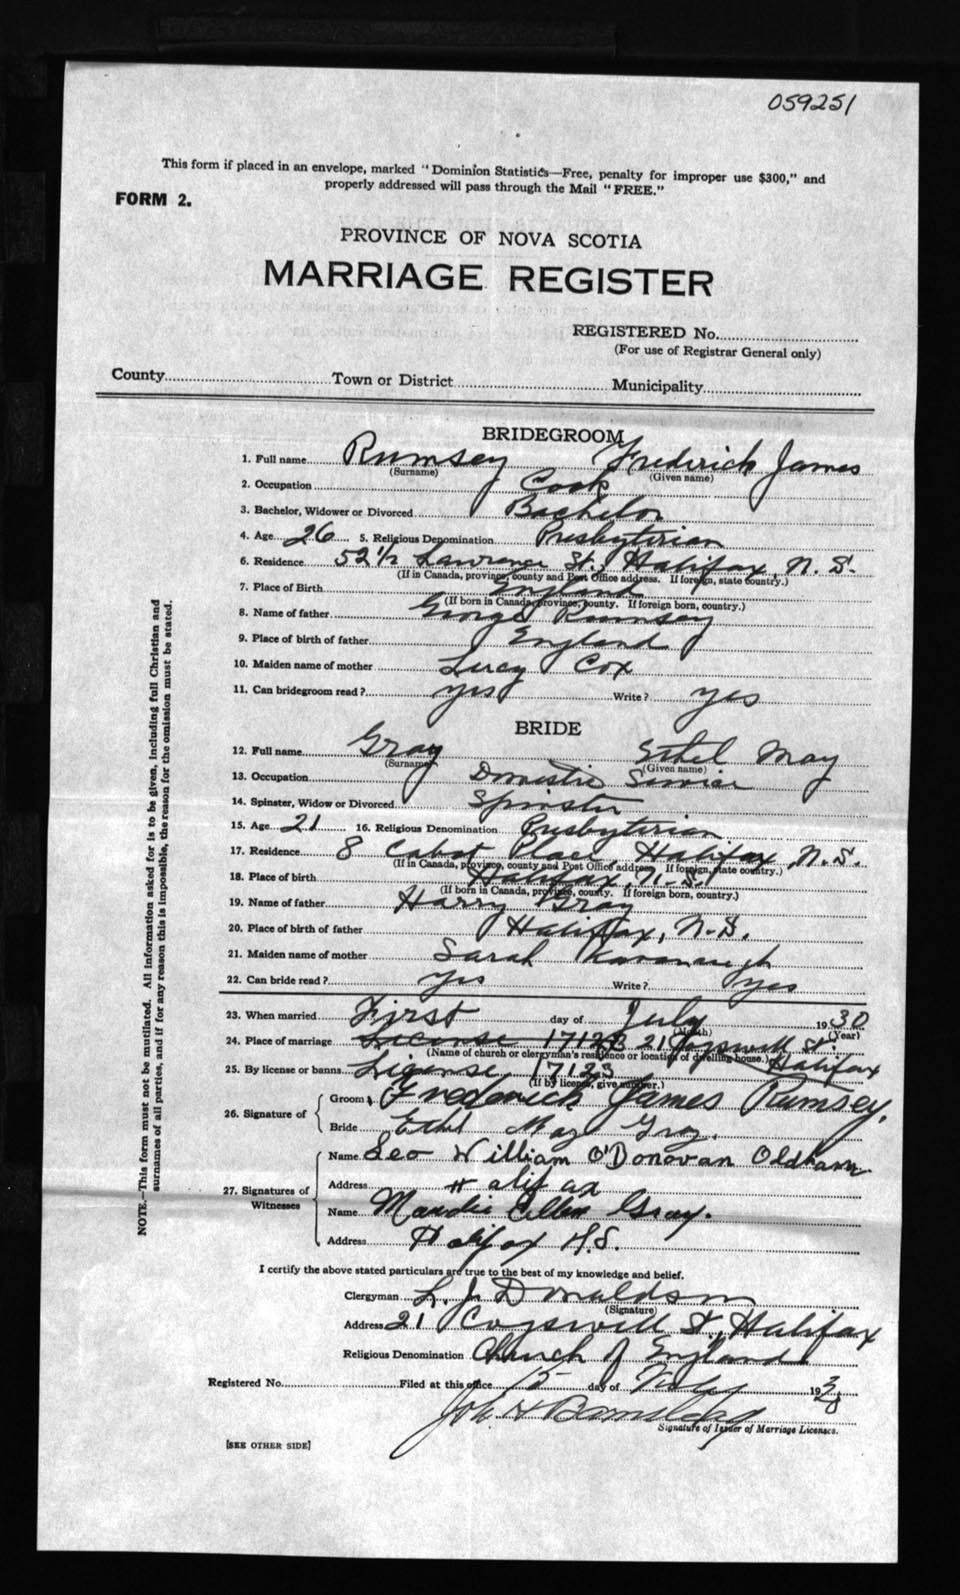 059251
This form if placed in an envelope, marked "Dominion Statistics—Free, penalty for improper use $300," and
properly addressed will pass through the Mail "FREE."
FORM 2.
PROVINCE OF NOVA SCOTIA
MARRIAGE REGISTER
REGISTERED No.
(For use of Registrar General only)
County Town or District Municipality
BRIDEGROOM
1. Full name Rumsey Frederick James
(Surname) (Given name)
2. Occupation Cook
3. Bachelor, Widower or Divorced Bachelor
4. Age 26 5. Religious Denomination Presbyterian
6. Residence 52½ Lawrence St., Halifax, N. S.
(If in Canada, province, county and Post Office address. If foreign, state country.)
7. Place of Birth England
(If born in Canada, province, county. If foreign born, country.)
8. Name of father George Rumsey
9. Place of birth of father England
10. Maiden name of mother Lucy Cox
11. Can bridegroom read? yes Write? yes
BRIDE
12. Full name Gray Ethel May
(Surname) (Given name)
13. Occupation Domestic Service
14. Spinster, Widow or Divorced Spinster
15. Age 21 16. Religious Denomination Presbyterian
17. Residence 8 Cabot Place Halifax, N. S.
(If in Canada, province, county and Post Office address. If foreign, state country.)
18. Place of birth Halifax, N. S.
(If born in Canada, province, county. If foreign born, country.)
19. Name of father Harry Gray
20. Place of birth of father Halifax, N. S.
21. Maiden name of mother Sarah Kavanaugh
22. Can bride read? yes Write? yes
23. When married First day of July 1930
(Month) (Year)
24. Place of marriage License 17123 21 Cogswell St. Halifax
(Name of church or clergyman's residence or location of dwelling house.)
25. By license or banns License 17123
(If by license, give number.)
26. Signature of
Groom Frederick James Rumsey.
Bride Ethel May Gray.
27. Signatures of Witnesses
Name Leo William O'Donovan Oldham
Address Halifax
Name Ellen Gray.
Address Halifax N.S.
I certify the above stated particulars are true to the best of my knowledge and belief.
Clergyman L. J. Donaldson
(Signature)
Address 21 Cogswell St., Halifax
Religious Denomination Church of England
Registered No. Filed at this office 15 day of July 193
Signature of Issuer of Marriage Licenses.
[SEE OTHER SIDE]
NOTE.—This form must not be mutilated. All information asked for is to be given, including full Christian and
surnames of all parties, and if for any reason this is impossible, the reason for the omission must be stated.